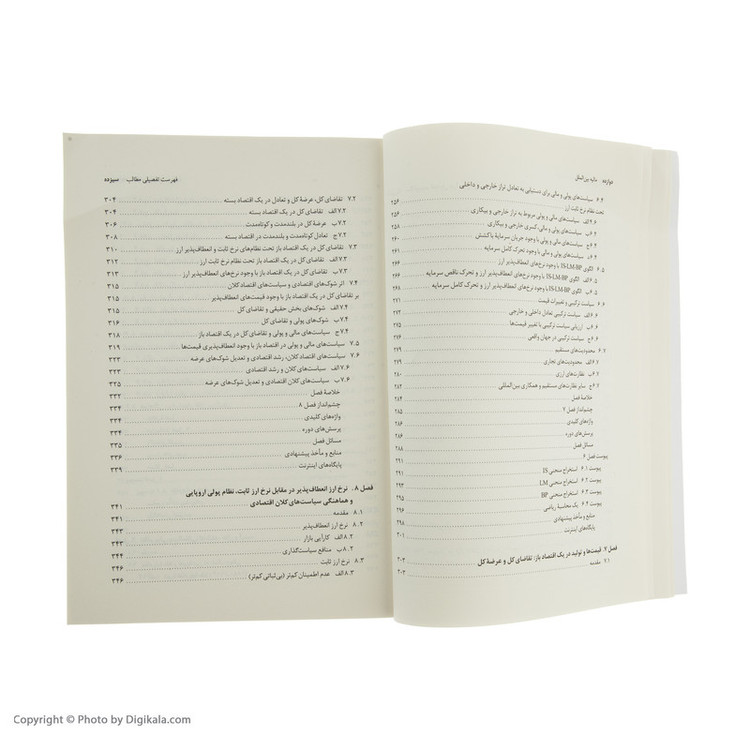 دوازده مالیه بین‌الملل
۶.۴ سیاست‌های پولی و مالی برای دستیابی به تعادل تراز خارجی و داخلی
تحت نظام نرخ ثابت ارز ۲۵۶
۶.۴الف سیاست‌های مالی و پولی مربوط به تراز خارجی و بیکاری ۲۵۶
۶.۴ب سیاست‌های مالی و پولی، کسری خارجی و بیکاری ۲۵۸
۶.۴ج سیاست‌های مالی و پولی با وجود جریان سرمایهٔ باکشش ۲۶۰
سیاست‌های پولی و مالی با وجود تحرک کامل سرمایه ۲۶۱
۶.۵ الگوی IS-LM-BP با وجود نرخ‌های انعطاف‌پذیر ارز
۶.۵الف الگوی IS-LM-BP با وجود نرخ‌های انعطاف‌پذیر ارز و تحرک ناقص سرمایه ۲۶۶
۶.۵ب الگوی IS-LM-BP با وجود نرخ‌های انعطاف‌پذیر ارز و تحرک کامل سرمایه
۶.۶ سیاست ترکیبی و تغییرات قیمت ۲۷۱
۶.۶الف سیاست ترکیبی تعادل داخلی و خارجی
۶.۶ب ارزیابی سیاست ترکیبی با تغییر قیمت‌ها
۶.۶ج سیاست ترکیبی در جهان واقعی ۲۷۶
۶.۷ محدودیت‌های مستقیم ۲۷۹
۶.۷الف محدودیت‌های تجاری ۲۷۹
۶.۷ب نظارت‌های ارزی
۶.۷ج سایر نظارت‌های مستقیم و همکاری بین‌المللی ۲۸۴
خلاصهٔ فصل ۲۸۳
چشم‌انداز فصل ۷ ۲۸۵
واژه‌های کلیدی
پرسش‌های دوره ۲۸۶
مسائل فصل ۲۸۸
پیوست فصل ۶
پیوست ۶.۱ استخراج منحنی IS ۲۹۱
پیوست ۶.۲ استخراج منحنی LM ۲۹۳
پیوست ۶.۳ استخراج منحنی BP ۲۹۵
پیوست ۶.۴ یک محاسبهٔ ریاضی ۲۹۶
منابع و مآخذ پیشنهادی
پایگاه‌های اینترنت
فصل ۷. قیمت‌ها و تولید در یک اقتصاد باز: تقاضای کل و عرضهٔ کل ۳۰۳
۷.۱ مقدمه ۳۰۳
فهرست تفصیلی مطالب سیزده
۷.۲ تقاضای کل، عرضهٔ کل و تعادل در یک اقتصاد بسته ۳۰۴
۷.۲الف تقاضای کل در یک اقتصاد بسته ۳۰۴
۷.۲ب عرضهٔ کل در بلندمدت و کوتاه‌مدت ۳۰۶
۷.۲ج تعادل کوتاه‌مدت و بلندمدت در اقتصاد بسته ۳۰۸
۷.۳ تقاضای کل در یک اقتصاد باز تحت نظام‌های نرخ ثابت و انعطاف‌پذیر ارز ۳۱۰
۷.۳الف تقاضای کل در یک اقتصاد باز تحت نظام نرخ ثابت ارز ۳۱۲
۷.۳ب تقاضای کل در یک اقتصاد باز با وجود نرخ‌های انعطاف‌پذیر ارز ۳۱۳
۷.۴ اثر شوک‌های اقتصادی و سیاست‌های اقتصاد کلان
بر تقاضای کل در یک اقتصاد باز با وجود قیمت‌های انعطاف‌پذیر ۳۱۵
۷.۴الف شوک‌های بخش حقیقی و تقاضای کل ۳۱۵
۷.۴ب شوک‌های پولی و تقاضای کل ۳۱۶
۷.۴ج سیاست‌های مالی و پولی و تقاضای کل در یک اقتصاد باز ۳۱۸
۷.۵ سیاست‌های مالی و پولی در اقتصاد باز با وجود انعطاف‌پذیری قیمت‌ها ۳۱۹
۷.۶ سیاست‌های اقتصاد کلان، رشد اقتصادی و تعدیل شوک‌های عرضه ۳۲۳
۷.۶الف سیاست‌های کلان و رشد اقتصادی ۳۲۳
۷.۶ب سیاست‌های کلان اقتصادی و تعدیل شوک‌های عرضه ۳۲۵
خلاصهٔ فصل ۳۳۲
چشم‌انداز فصل ۸ ۳۳۴
واژه‌های کلیدی ۳۳۴
پرسش‌های دوره ۳۳۴
مسائل فصل ۳۳۵
منابع و مآخذ پیشنهادی ۳۳۶
پایگاه‌های اینترنت ۳۳۹
فصل ۸. نرخ ارز انعطاف‌پذیر در مقابل نرخ ارز ثابت، نظام پولی اروپایی
و هماهنگی سیاست‌های کلان اقتصادی ۳۴۱
۸.۱ مقدمه ۳۴۱
۸.۲ نرخ ارز انعطاف‌پذیر ۳۴۳
۸.۲الف کارآیی بازار ۳۴۳
۸.۲ب منافع سیاست‌گذاری ۳۴۴
۸.۳ نرخ ارز ثابت ۳۴۶
۸.۳الف عدم اطمینان کم‌تر (بی‌ثباتی کم‌تر) ۳۴۶
Copyright © Photo by Digikala.com